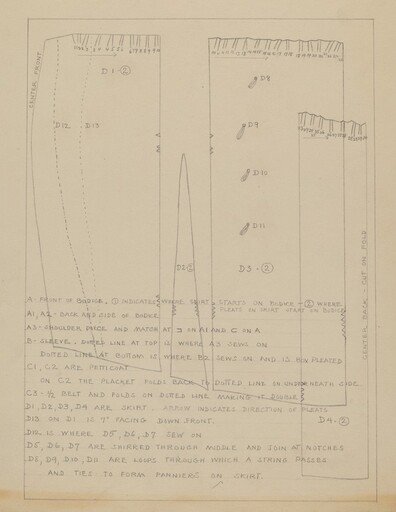 CENTER FRONT
D1-②
D12
D13
D8
D9
D10
D11
D2-②
D3-②
CENTER BACK - CUT ON FOLD
A- FRONT OF BODICE, ① INDICATES WHERE SKIRT STARTS ON BODICE - ② WHERE
PLEATS IN SKIRT START ON BODICE
A1, A2- BACK AND SIDE OF BODICE
A3- SHOULDER PIECE AND MATCH AT ⊐ ON A1 AND C ON A
B- SLEEVE. DOTTED LINE AT TOP IS WHERE A3 SEWS ON
DOTTED LINE AT BOTTOM IS WHERE B2 SEWS ON AND IS BOX PLEATED
C1, C2 ARE PETTICOAT
ON C2 THE PLACKET FOLDS BACK TO DOTTED LINE ON UNDERNEATH SIDE.
C3- ½ BELT AND FOLDS ON DOTED LINE MAKING IT DOUBLE
D1, D2, D3, D4 ARE SKIRT. ARROW INDICATES DIRECTION OF PLEATS
D13 ON D1 IS 7" FACING DOWN FRONT.
D4-②
D12 IS WHERE D5, D6, D7 SEW ON
D5, D6, D7 ARE SHIRRED THROUGH MIDDLE AND JOIN AT NOTCHES
D8, D9, D10, D11 ARE LOOPS THROUGH WHICH A STRING PASSES
AND TIES TO FORM PANNIERS ON SKIRT.